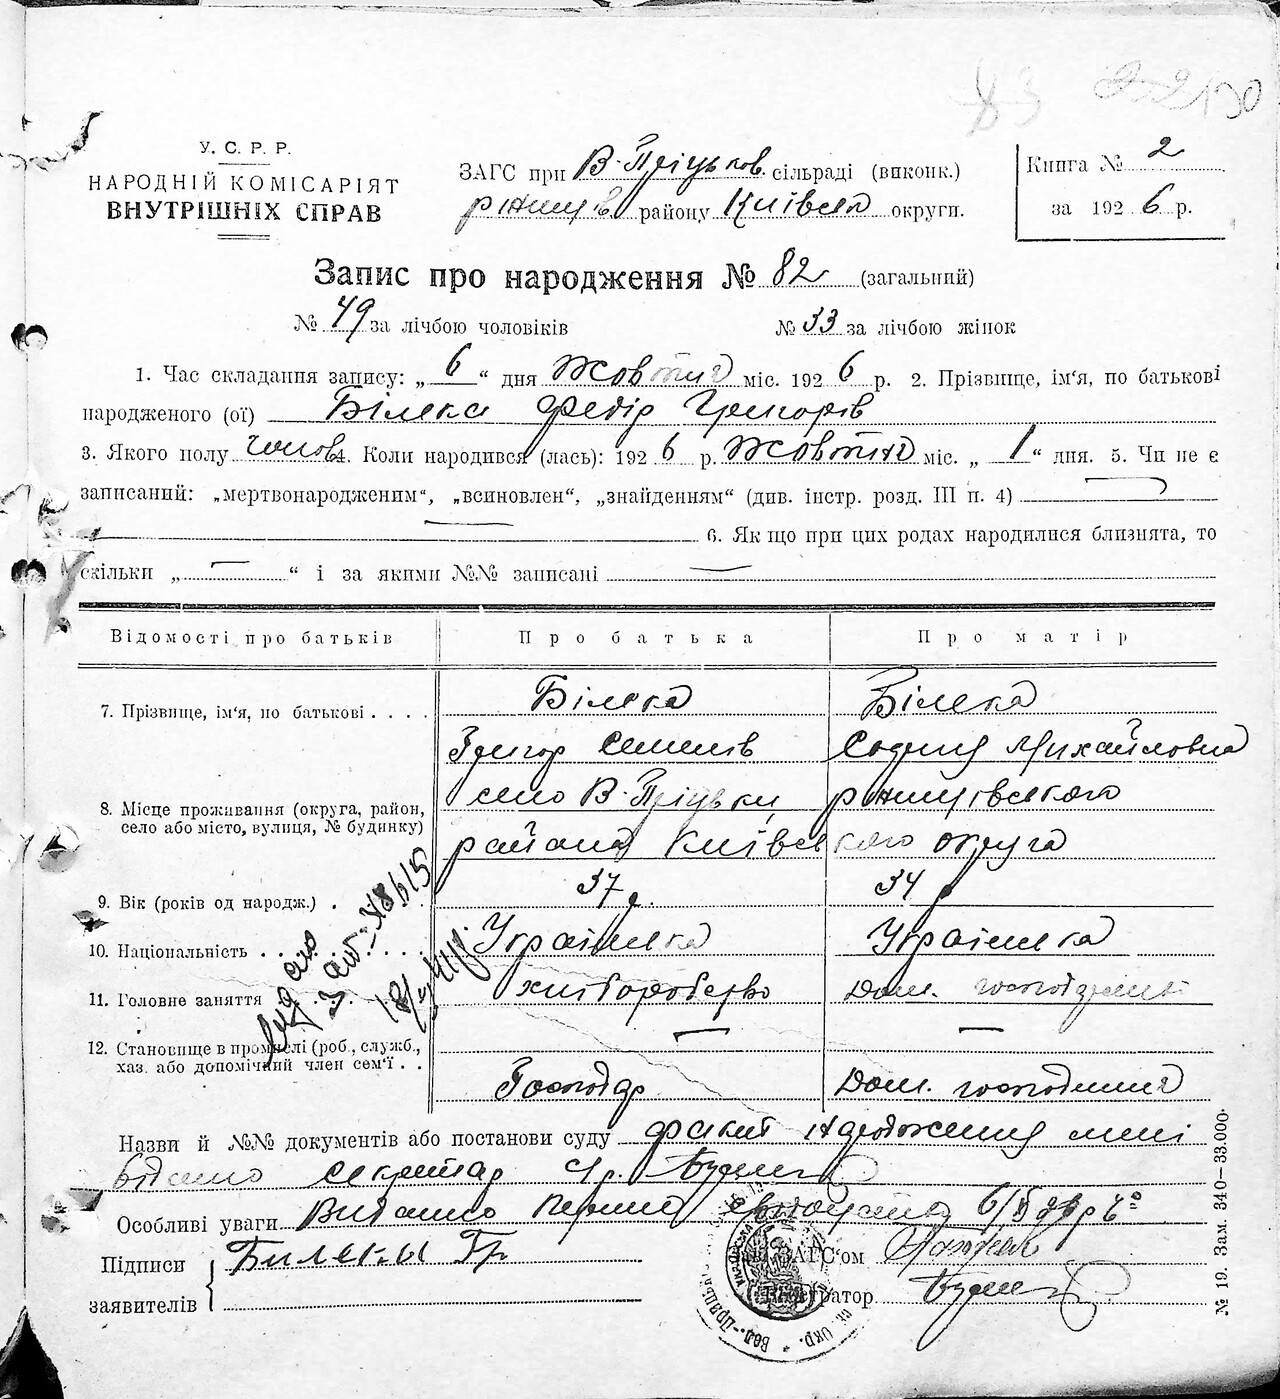 У.С.Р.Р.
НАРОДНІЙ КОМІСАРІЯТ
ВНУТРІШНІХ СПРАВ
ЗАГС при В-Пріцьков. сільраді (виконк.)
ржищів району Київська округи.
Книга № 2
за 1926 р.
Запис про народження № 82 (загальний)
№ 49 за лічбою чоловіків
№ 33 за лічбою жінок
1. Час складання запису: „ 6 “ дня Жовтня міс. 1926 р. 2. Прізвище, ім‘я, по батькові
народженого (ої) Білека Федір Григорів
3. Якого полу чолов. 4. Коли народився (лась): 1926 р. Жовтня міс. „ 1 “ дня. 5. Чи не є
записаний: „мертвонародженим“, „всиновлен“, „знайденням“ (див. інстр. розд. III п. 4)
6. Як що при цих родах народилися близнята, то
скільки „ — “ і за якими №№ записані —
Відомості про батьків
Про батька
Про матір
7. Прізвище, ім‘я, по батькові
Білека
Білека
Григор Семенів
Михайловна
8. Місце проживання (округа, район,
село або місто, вулиця, № будинку)
село В-Пріцьки, ржищівського
района Київського округа
9. Вік (років од народж.)
37 р.
34 р
10. Національність
Українка
Українка
11. Головне заняття
хліборобство
Дом. господиня
12. Становище в промислі (роб., служб.,
хаз. або допомічний член сем‘ї
Господар
Дом. господиня
Назви й №№ документів або постанови суду факт народження мені
відомо секретар
Особливі уваги Видано
Підписи
заявителів
Билекы Гр
ЗАГС‘ом
Регістратор
№ 19. Зам. 340—33.000.